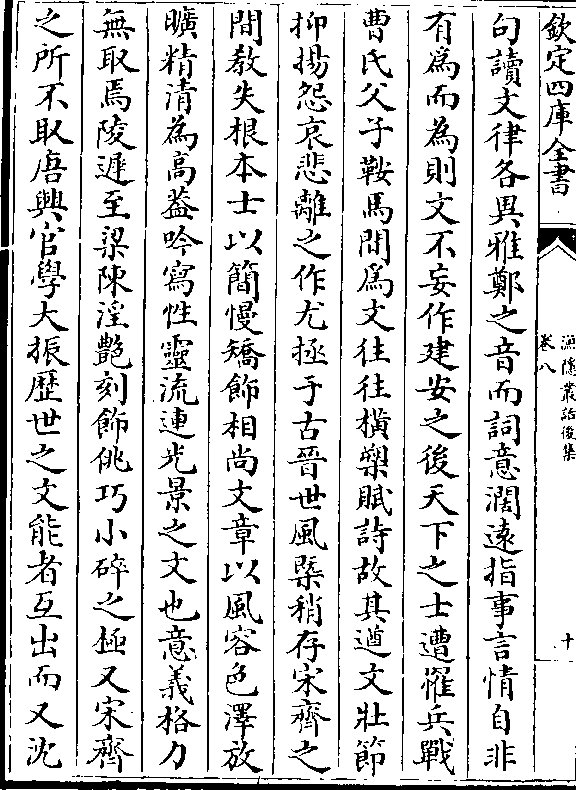 欽定四庫全書
漁隱叢話後集
卷八
十
句讀文律各異雅鄭之音而詞意濶遠指事言情自非
有爲而為則文不妄作建安之後天下之士遭罹兵戰
曹氏父子鞍馬間爲文往往橫槊賦詩故其遒文壯節
抑揚怨哀悲離之作尤極于古晉世風槩稍存宋齊之
間教失根本士以簡慢矯飾相尚文章以風容色澤放
曠精清為高葢吟寫性靈流連光景之文也意義格力
無取焉陵遲至梁陳淫艷刻飾佻巧小碎之極又宋齊
之所不取唐興官學大振歴世之文能者互出而又沈